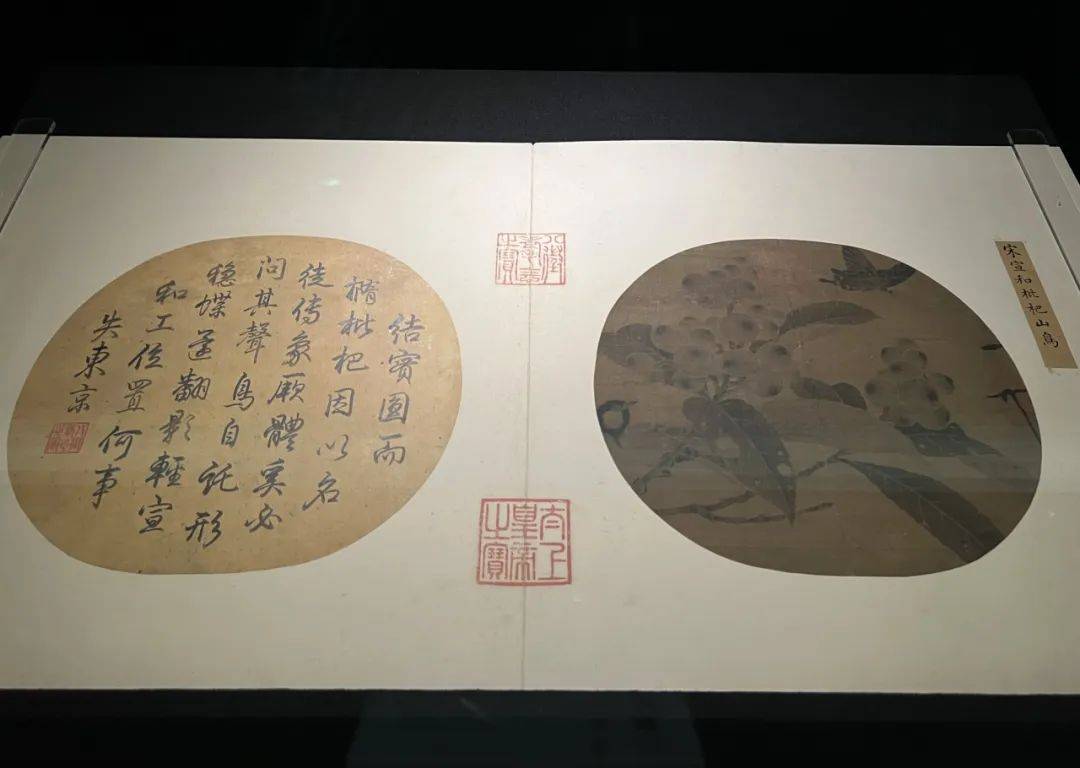 宋宣和枇杷山鳥
八徵耄念之寶
太上皇帝之寶
結實圓而
楕枇杷因以名
徒傳象厥體奚必
問其聲鳥自託形
穩蝶還翻影輕宣
和工位置何事
失東京